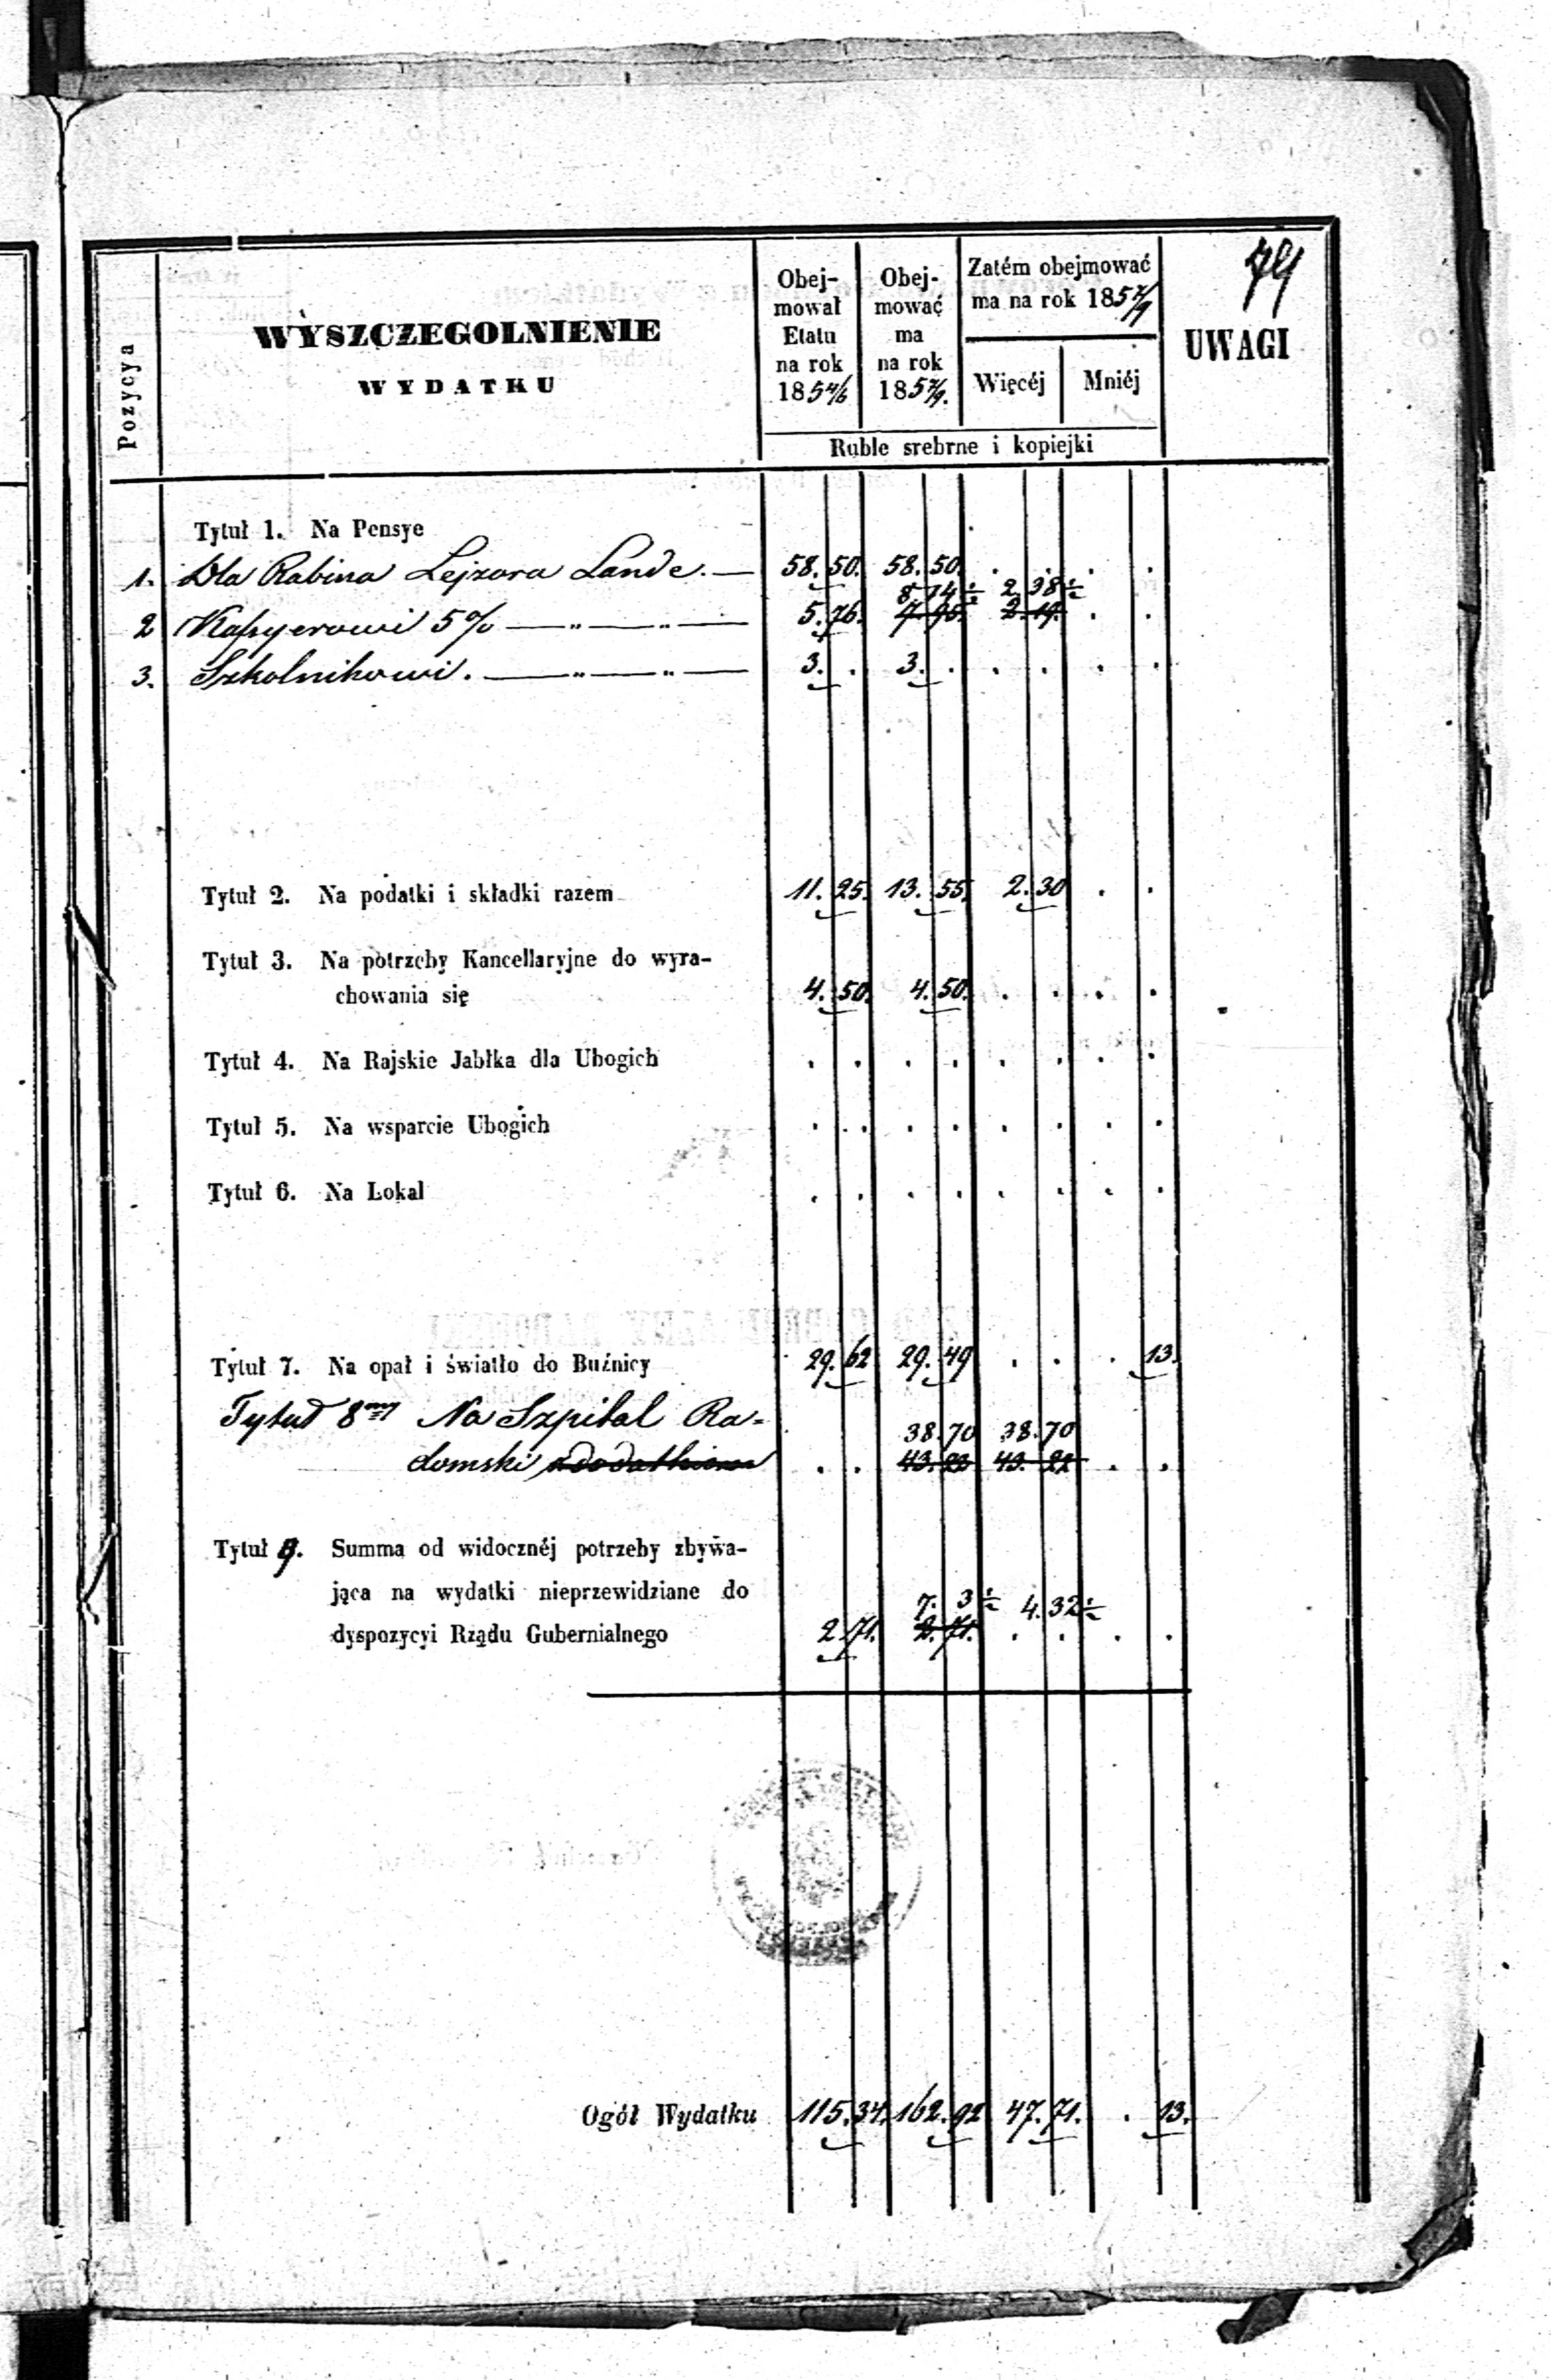 79
Pozycya
WYSZCZEGOLNIENIE
WYDATKU
Obej-
mował
Etatu
na rok
185 4/6
Obej-
mować
ma
na rok
185 7/9.
Zatém obejmować
ma na rok 185 7/9
Więcéj Mniéj
UWAGI
Ruble srebrne i kopiejki
Tytuł 1. Na Pensye
1. Dla Rabina Lejzora Lande. — 58. 50. 58. 50. . . . .
8. 14 ½ 2. 38 ½
2 Kassyerowi 5% — „ — „ — 5. 76. 7. 95. 2. 19. . .
3. Szkolnikowi. — „ — „ — 3. . 3. . . . . .
Tytuł 2. Na podatki i składki razem 11. 25. 13. 55. 2. 30 . .
Tytuł 3. Na potrzeby Kancellaryjne do wyra-
chowania się 4. 50. 4. 50. . . . .
Tytuł 4. Na Rajskie Jabłka dla Ubogich . . . . . . . .
Tytuł 5. Na wsparcie Ubogich . . . . . . . .
Tytuł 6. Na Lokal . . . . . . . .
Tytuł 7. Na opał i światło do Buźnicy 29. 62 29. 49 . . . 13.
Tytuł 8my Na Szpital Ra-
38. 70 38. 70
domski z dodatkiem . . 43. 22 43. 22 . .
Tytuł 9. Summa od widocznéj potrzeby zbywa-
jąca na wydatki nieprzewidziane do
7. 3 ½ 4. 32 ½
dyspozycyi Rządu Gubernialnego 2. 71. 2. 71. . . . .
Ogół Wydatku 115. 34. 162. 92 47. 71. . 13.